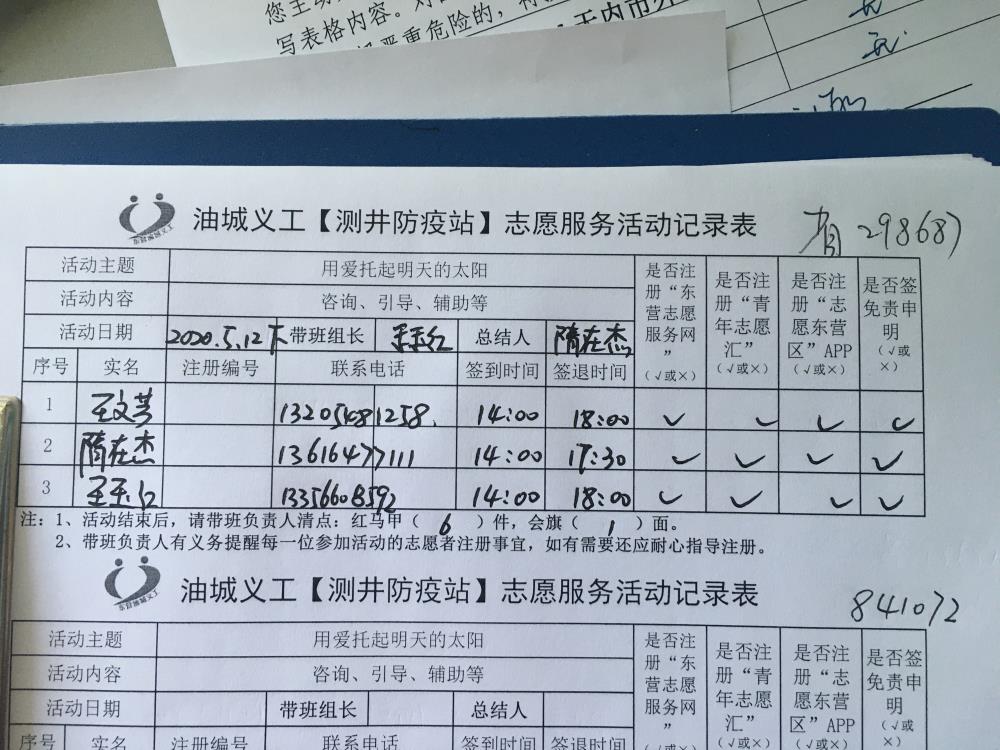 您主动
写表格内容。对
严重危险的，
天内市外
无
油城义工【测井防疫站】志愿服务活动记录表
298687
活动主题 用爱托起明天的太阳 是否注册“东营志愿服务网”（√或×） 是否注册“青年志愿汇”（√或×） 是否注册“志愿东营区”APP（√或×） 是否签免责申明（√或×）
活动内容 咨询、引导、辅助等
活动日期 2020.5.12下 带班组长 王玉红 总结人 隋在杰
序号 实名 注册编号 联系电话 签到时间 签退时间
1 王文芳 13205481258. 14:00 18:00 √ √ √ √
2 隋在杰 13616477111 14:00 17:30 √ √ √ √
3 王玉红 13356608592 14:00 18:00 √ √ √ √
注：1、活动结束后，请带班负责人清点：红马甲（ 6 ）件，会旗（ 1 ）面。
2、带班负责人有义务提醒每一位参加活动的志愿者注册事宜，如有需要还应耐心指导注册。
油城义工【测井防疫站】志愿服务活动记录表
841072
活动主题 用爱托起明天的太阳 是否注册“东营志愿服务网” 是否注册“青年志愿汇”（√或×） 是否注册“志愿东营区”APP（√或×） 是否签免责申明（√或×）
活动内容 咨询、引导、辅助等
活动日期 带班组长 总结人
序号 实名 注册编号 联系电话 签到时间 签退时间